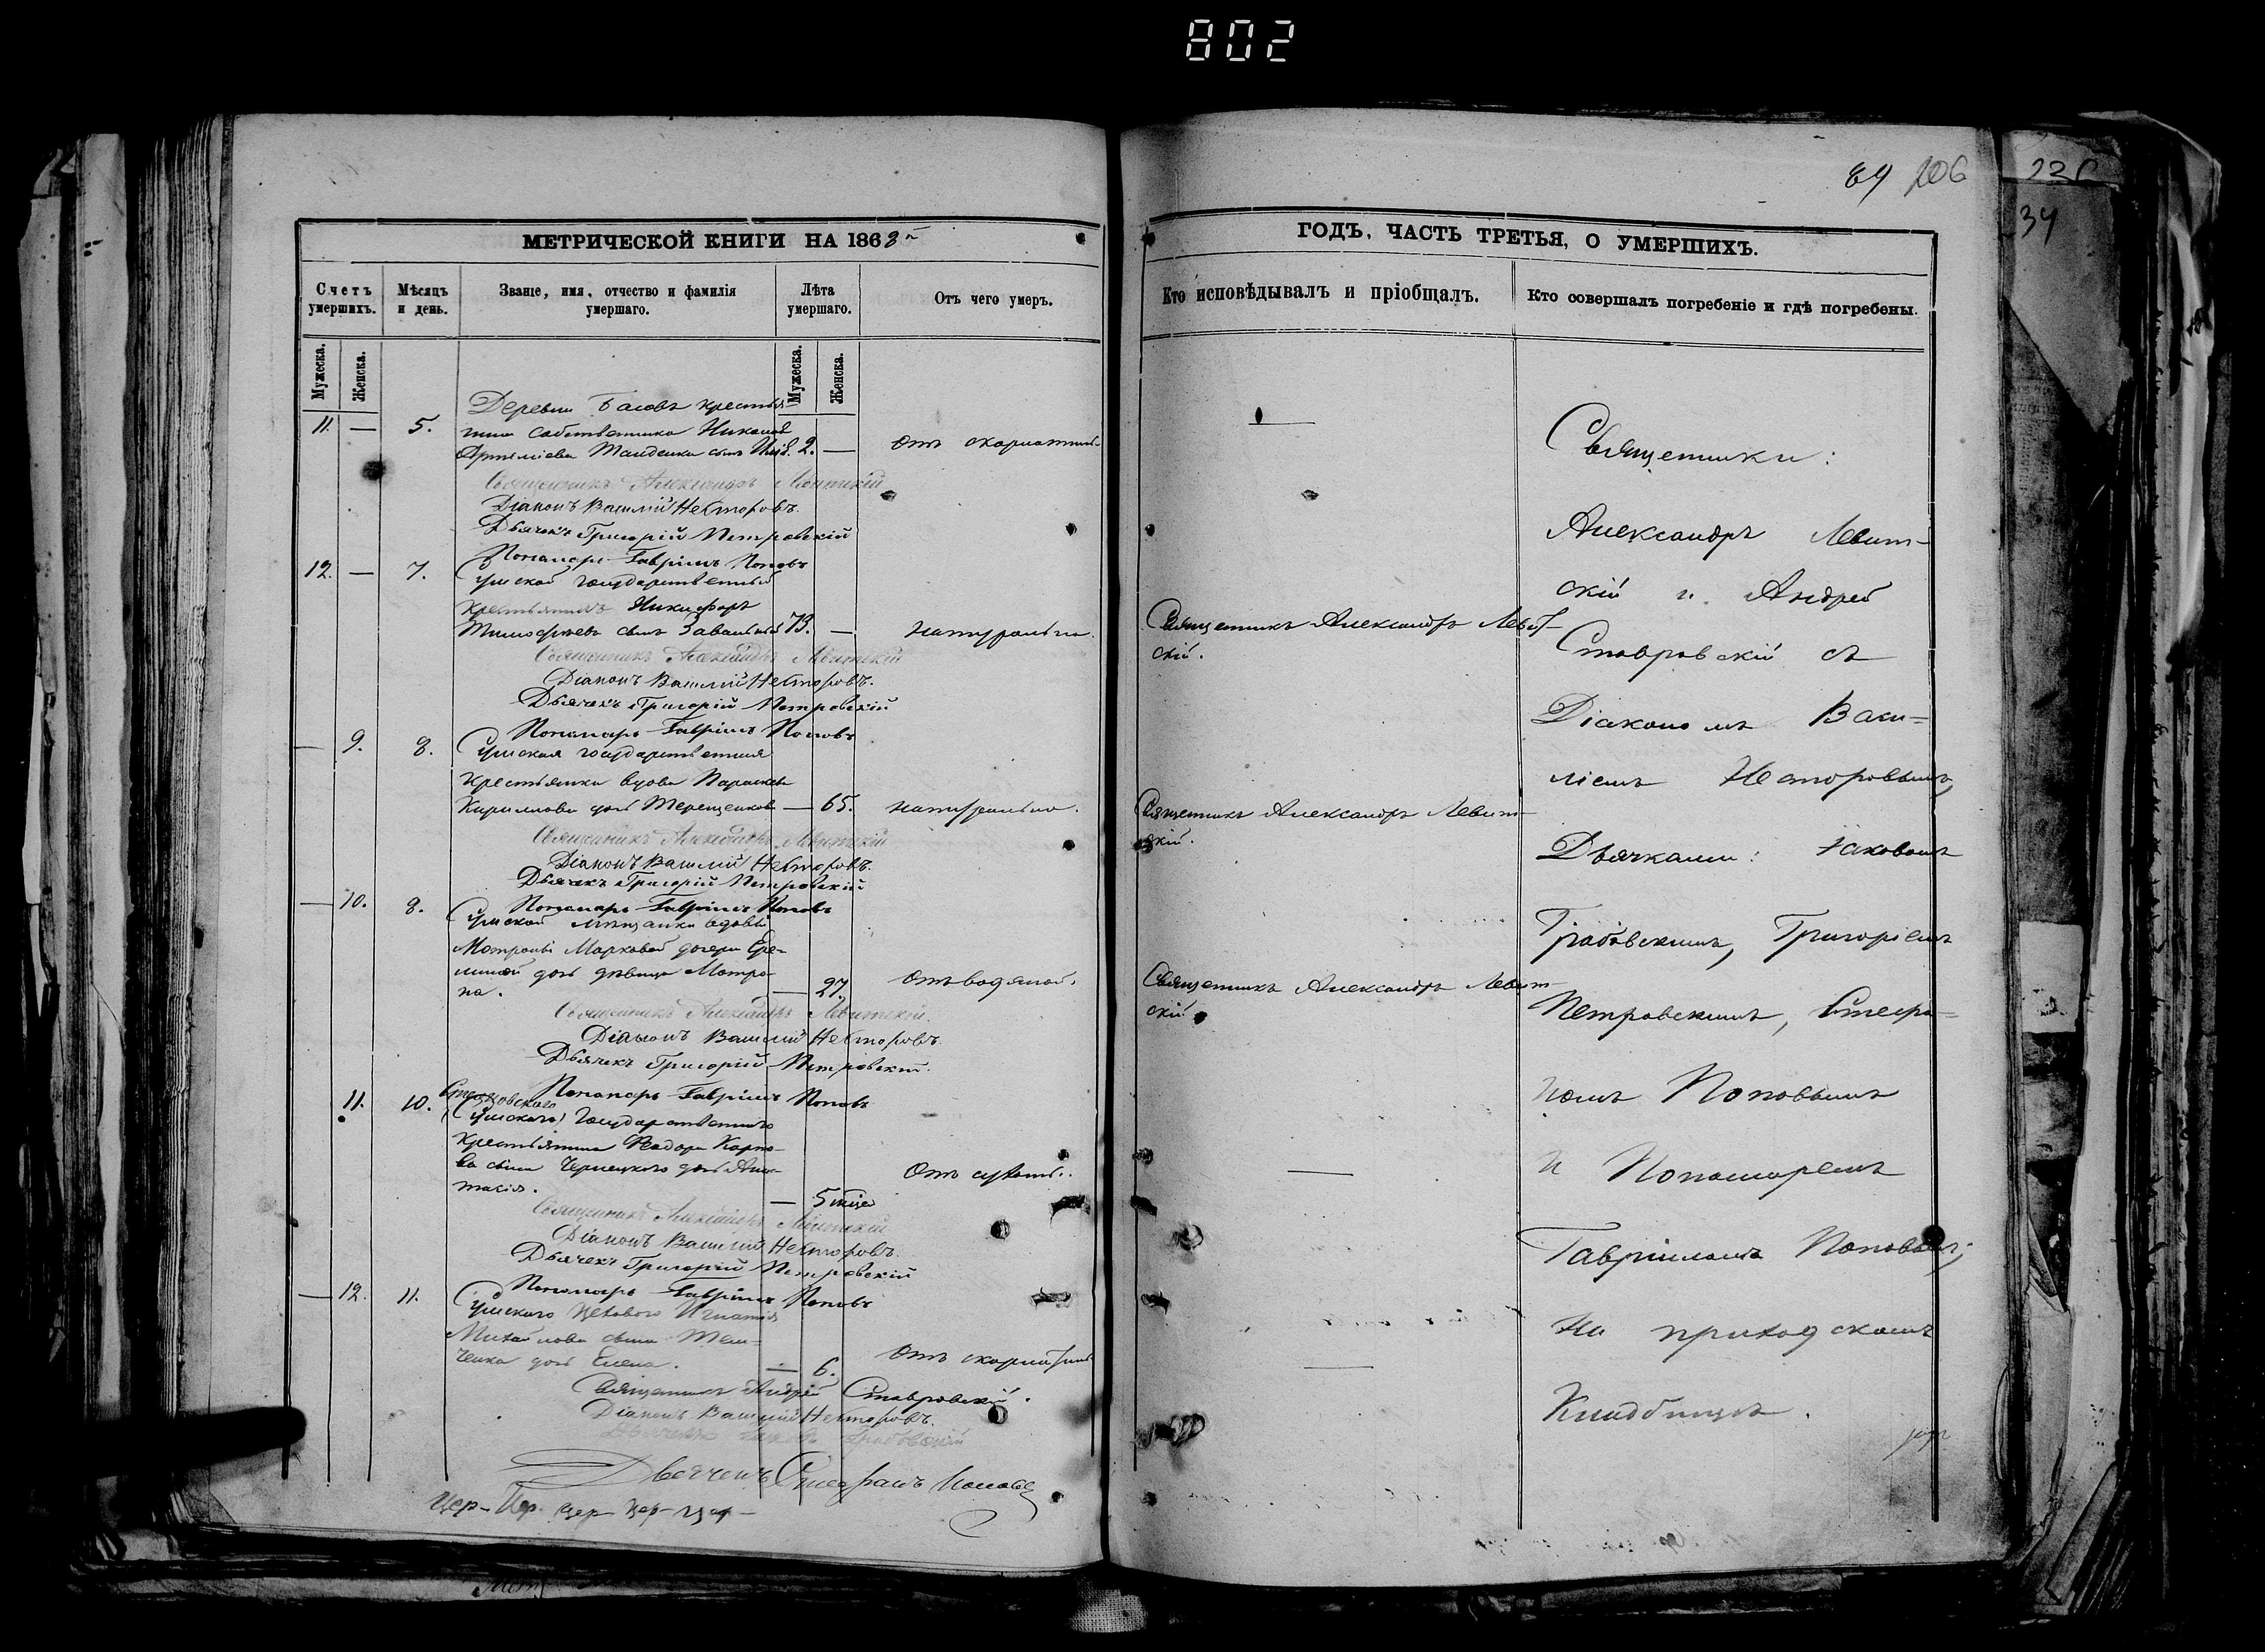 802
89 206
236
34
МЕТРИЧЕСКОЙ КНИГИ НА 1868
Счетъ умершихъ.
Мѣсяцъ и день.
Званіе, имя, отчество и фамилія умершаго.
Лѣта умершаго.
Отъ чего умеръ.
Мужеска.
Женска.
Мужеска.
Женска.
Деревни Басовъ крестья-
11. — 5. нина собственника
2. — Отъ скарлатины
Священникъ Александръ Левитскій
Діаконъ Василій Несторовъ.
Дьячекъ Григорій Петровскій
Пономарь Гавріилъ Поповъ
12. — 7. Сумской государственный
крестьянинъ Никифоръ
Тимофѣевъ сынъ 73. — натурально.
Священникъ Александръ Левитскій
Діаконъ Василій Несторовъ.
Дьячекъ Григорій Петровскій
Пономарь Гавріилъ Поповъ
— 9. 8. Сумская государственная
крестьянка вдова Параскева
Кириллова дочь Терещенкова — 65. натурально.
Священникъ Александръ Левитскій
Діаконъ Василій Несторовъ.
Дьячекъ Григорій Петровскій
Пономарь Гавріилъ Поповъ
— 10. 8. Сумской мѣщанки вдовы
Матроны Марковой дочери
дочь дѣвица Матро-
на. — 27. Отъ водяной.
Священникъ Александръ Левитскій.
Діаконъ Василій Несторовъ
Дьячекъ Григорій Петровскій.
Пономарь Гавріилъ Поповъ
— 11. 10. (Сумскаго) Государственнаго
крестьянина Феодора Карпо-
ва сына Чернецкаго дочь Анас-
тасія. — 5 мѣся Отъ сухотъ.
Священникъ Александръ Левитскій
Діаконъ Василій Несторовъ.
Дьячекъ Григорій Петровскій
Пономарь Гавріилъ Поповъ
— 12. 11. Сумскаго цеховаго Игнатія
Михайлова сына
ченка дочь Елена. — 6. Отъ скарлатины
Священникъ Андрей Ставровскій.
Діаконъ Василій Несторовъ.
Дьячекъ Іаковъ Грабовскій
Дьячекъ Стефанъ Поповъ
Цер- Цер- Цер- Цер- Цер-
ГОДЪ, ЧАСТЬ ТРЕТЬЯ, О УМЕРШИХЪ.
Кто исповѣдывалъ и пріобщалъ.
Кто совершалъ погребеніе и гдѣ погребены.
—
Священникъ Александръ Левит-
скій.
Священникъ Александръ Левит-
скій.
Священникъ Александръ Левит-
скій.
—
—
Священники:
Александръ Левит-
скій и Андрей
Ставровскій съ
Діакономъ Васи-
ліемъ Несторовымъ,
Дьячками: Іаковомъ
Грабовскимъ, Григоріемъ
Петровскимъ, Стефа-
номъ Поповымъ
и Пономаремъ
Гавріиломъ Поповымъ;
На приходскомъ
Кладбищѣ.